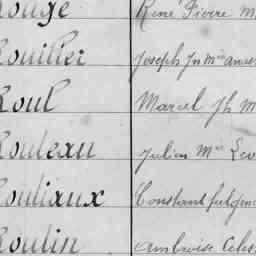 Rouge René Pierre M
Rouiller Joseph Jn Mie
Roul Marcel Jh M
Rouleau Julien Mie
Rouliaux Constant
Roulin Ambroise Céles